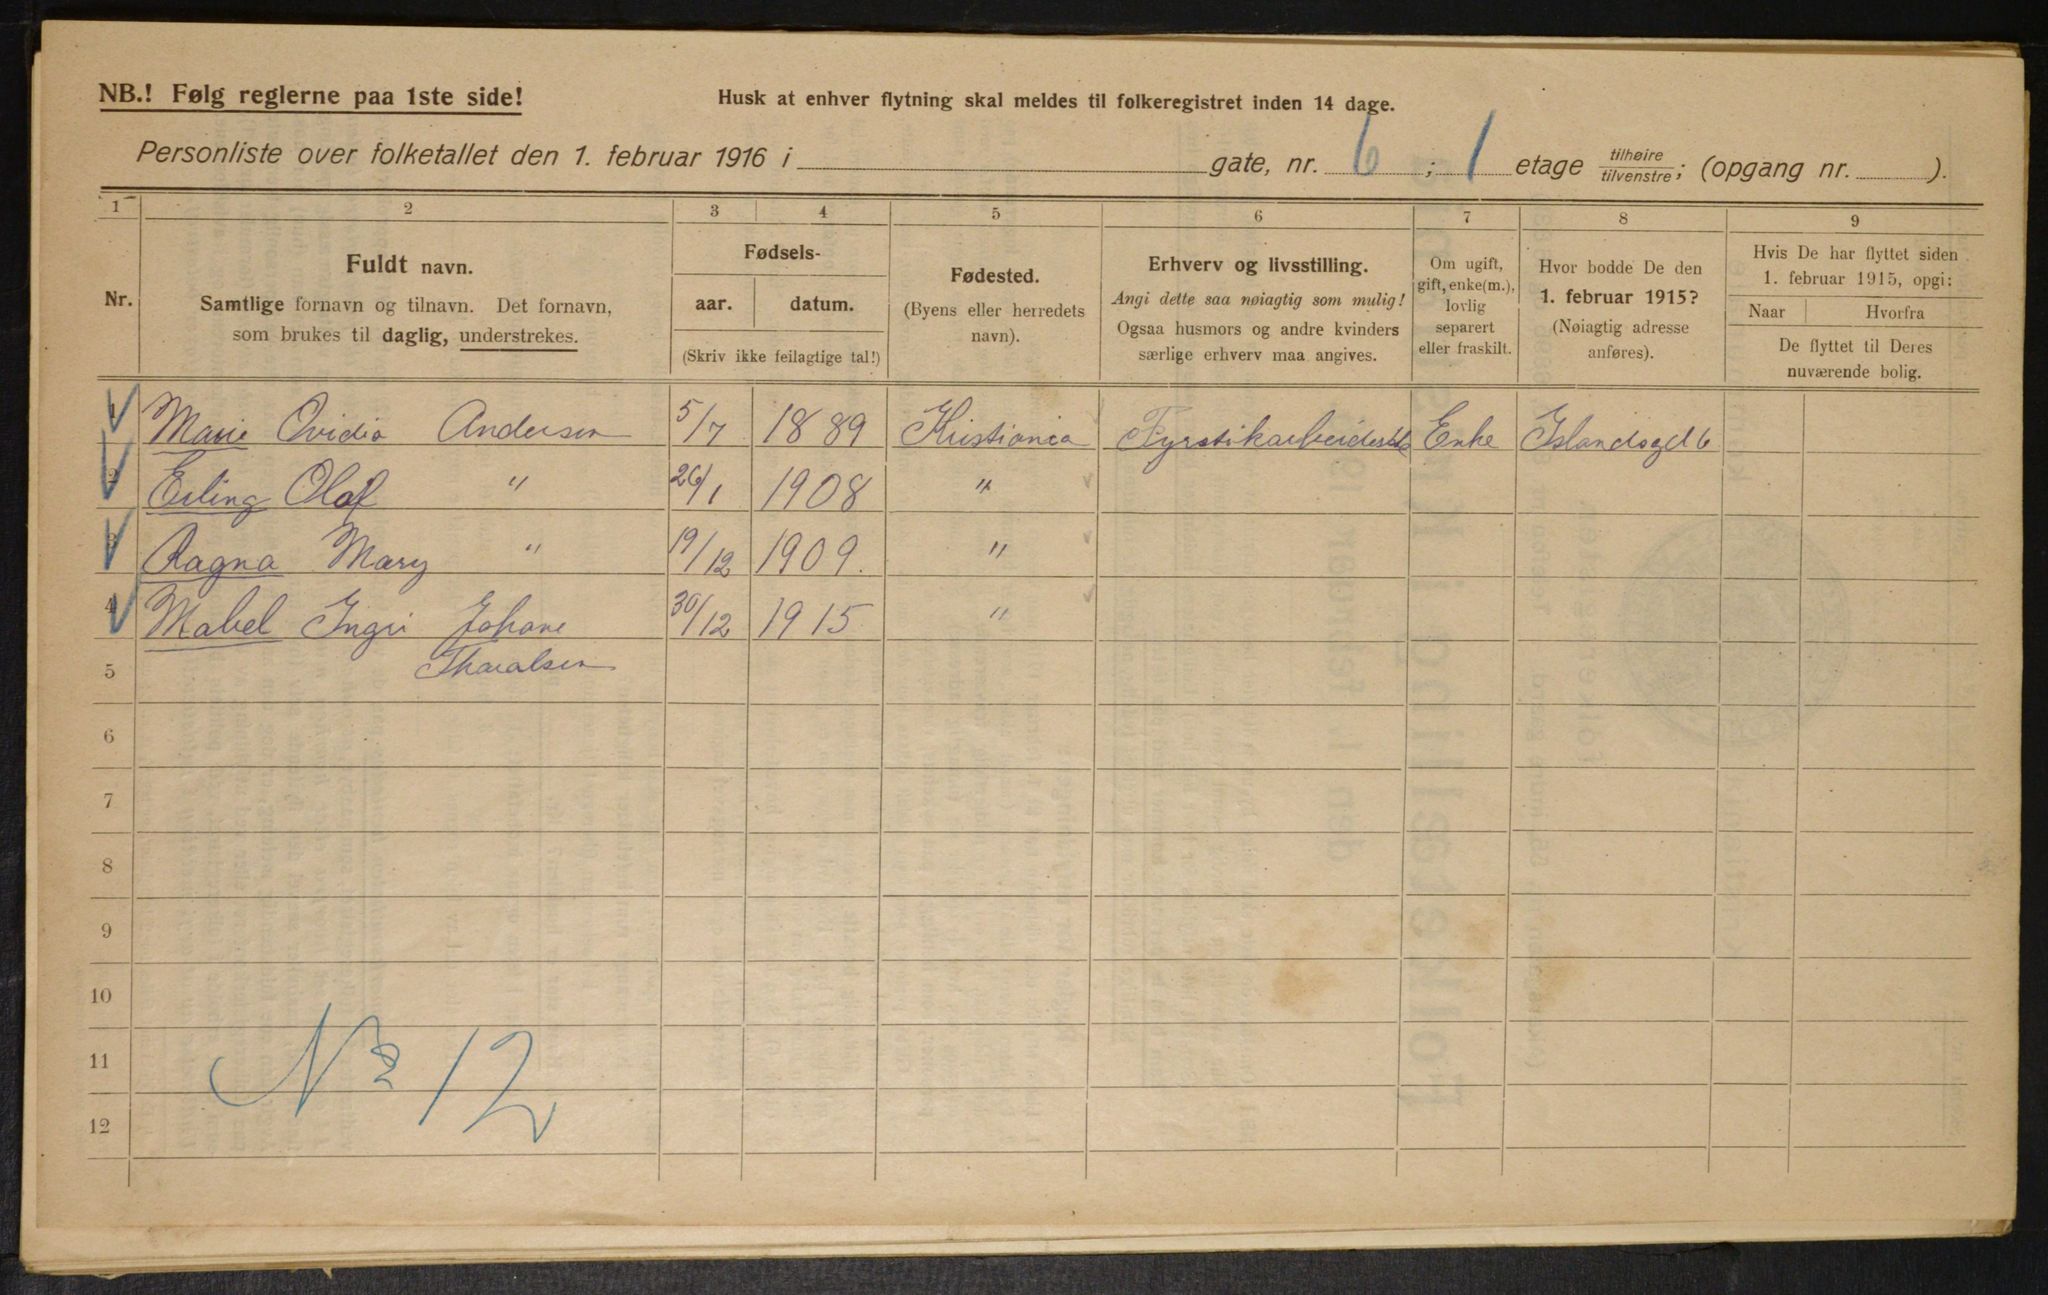 NB.! Følg reglerne paa 1ste side!
Husk at enhver flytning skal meldes til folkeregistret inden 14 dage.
Personliste over folketallet den 1. februar 1916 i gate, nr. 6 ; 1 etage tilhøire tilvenstre; (opgang nr. ).
1 2 3 4 5 6 7 8 9
Nr.
Fuldt navn.
Samtlige fornavn og tilnavn. Det fornavn,
som brukes til daglig, understrekes.
Fødsels-
aar. datum.
(Skriv ikke feilagtige tal!)
Fødested.
(Byens eller herredets
navn).
Erhverv og livsstilling.
Angi dette saa nøiagtig som mulig!
Ogsaa husmors og andre kvinders
særlige erhverv maa angives.
Om ugift,
gift, enke(m.),
lovlig
separert
eller fraskilt.
Hvor bodde De den
1. februar 1915?
(Nøiagtig adresse
anføres).
Hvis De har flyttet siden
1. februar 1915, opgi:
Naar Hvorfra
De flyttet til Deres
nuværende bolig.
1 Marie Ovidia Andersen 5/7 1889 Kristiania Fyrstikarbeiderske Enke Islandsgd 6
2 Erling Olaf " 26/1 1908 "
3 Ragna Mary " 19/12 1909. "
4 Mabel Ingri Johane 30/12 1915 "
Tharalsen
5
6
7
8
9
10
11
12
No 12